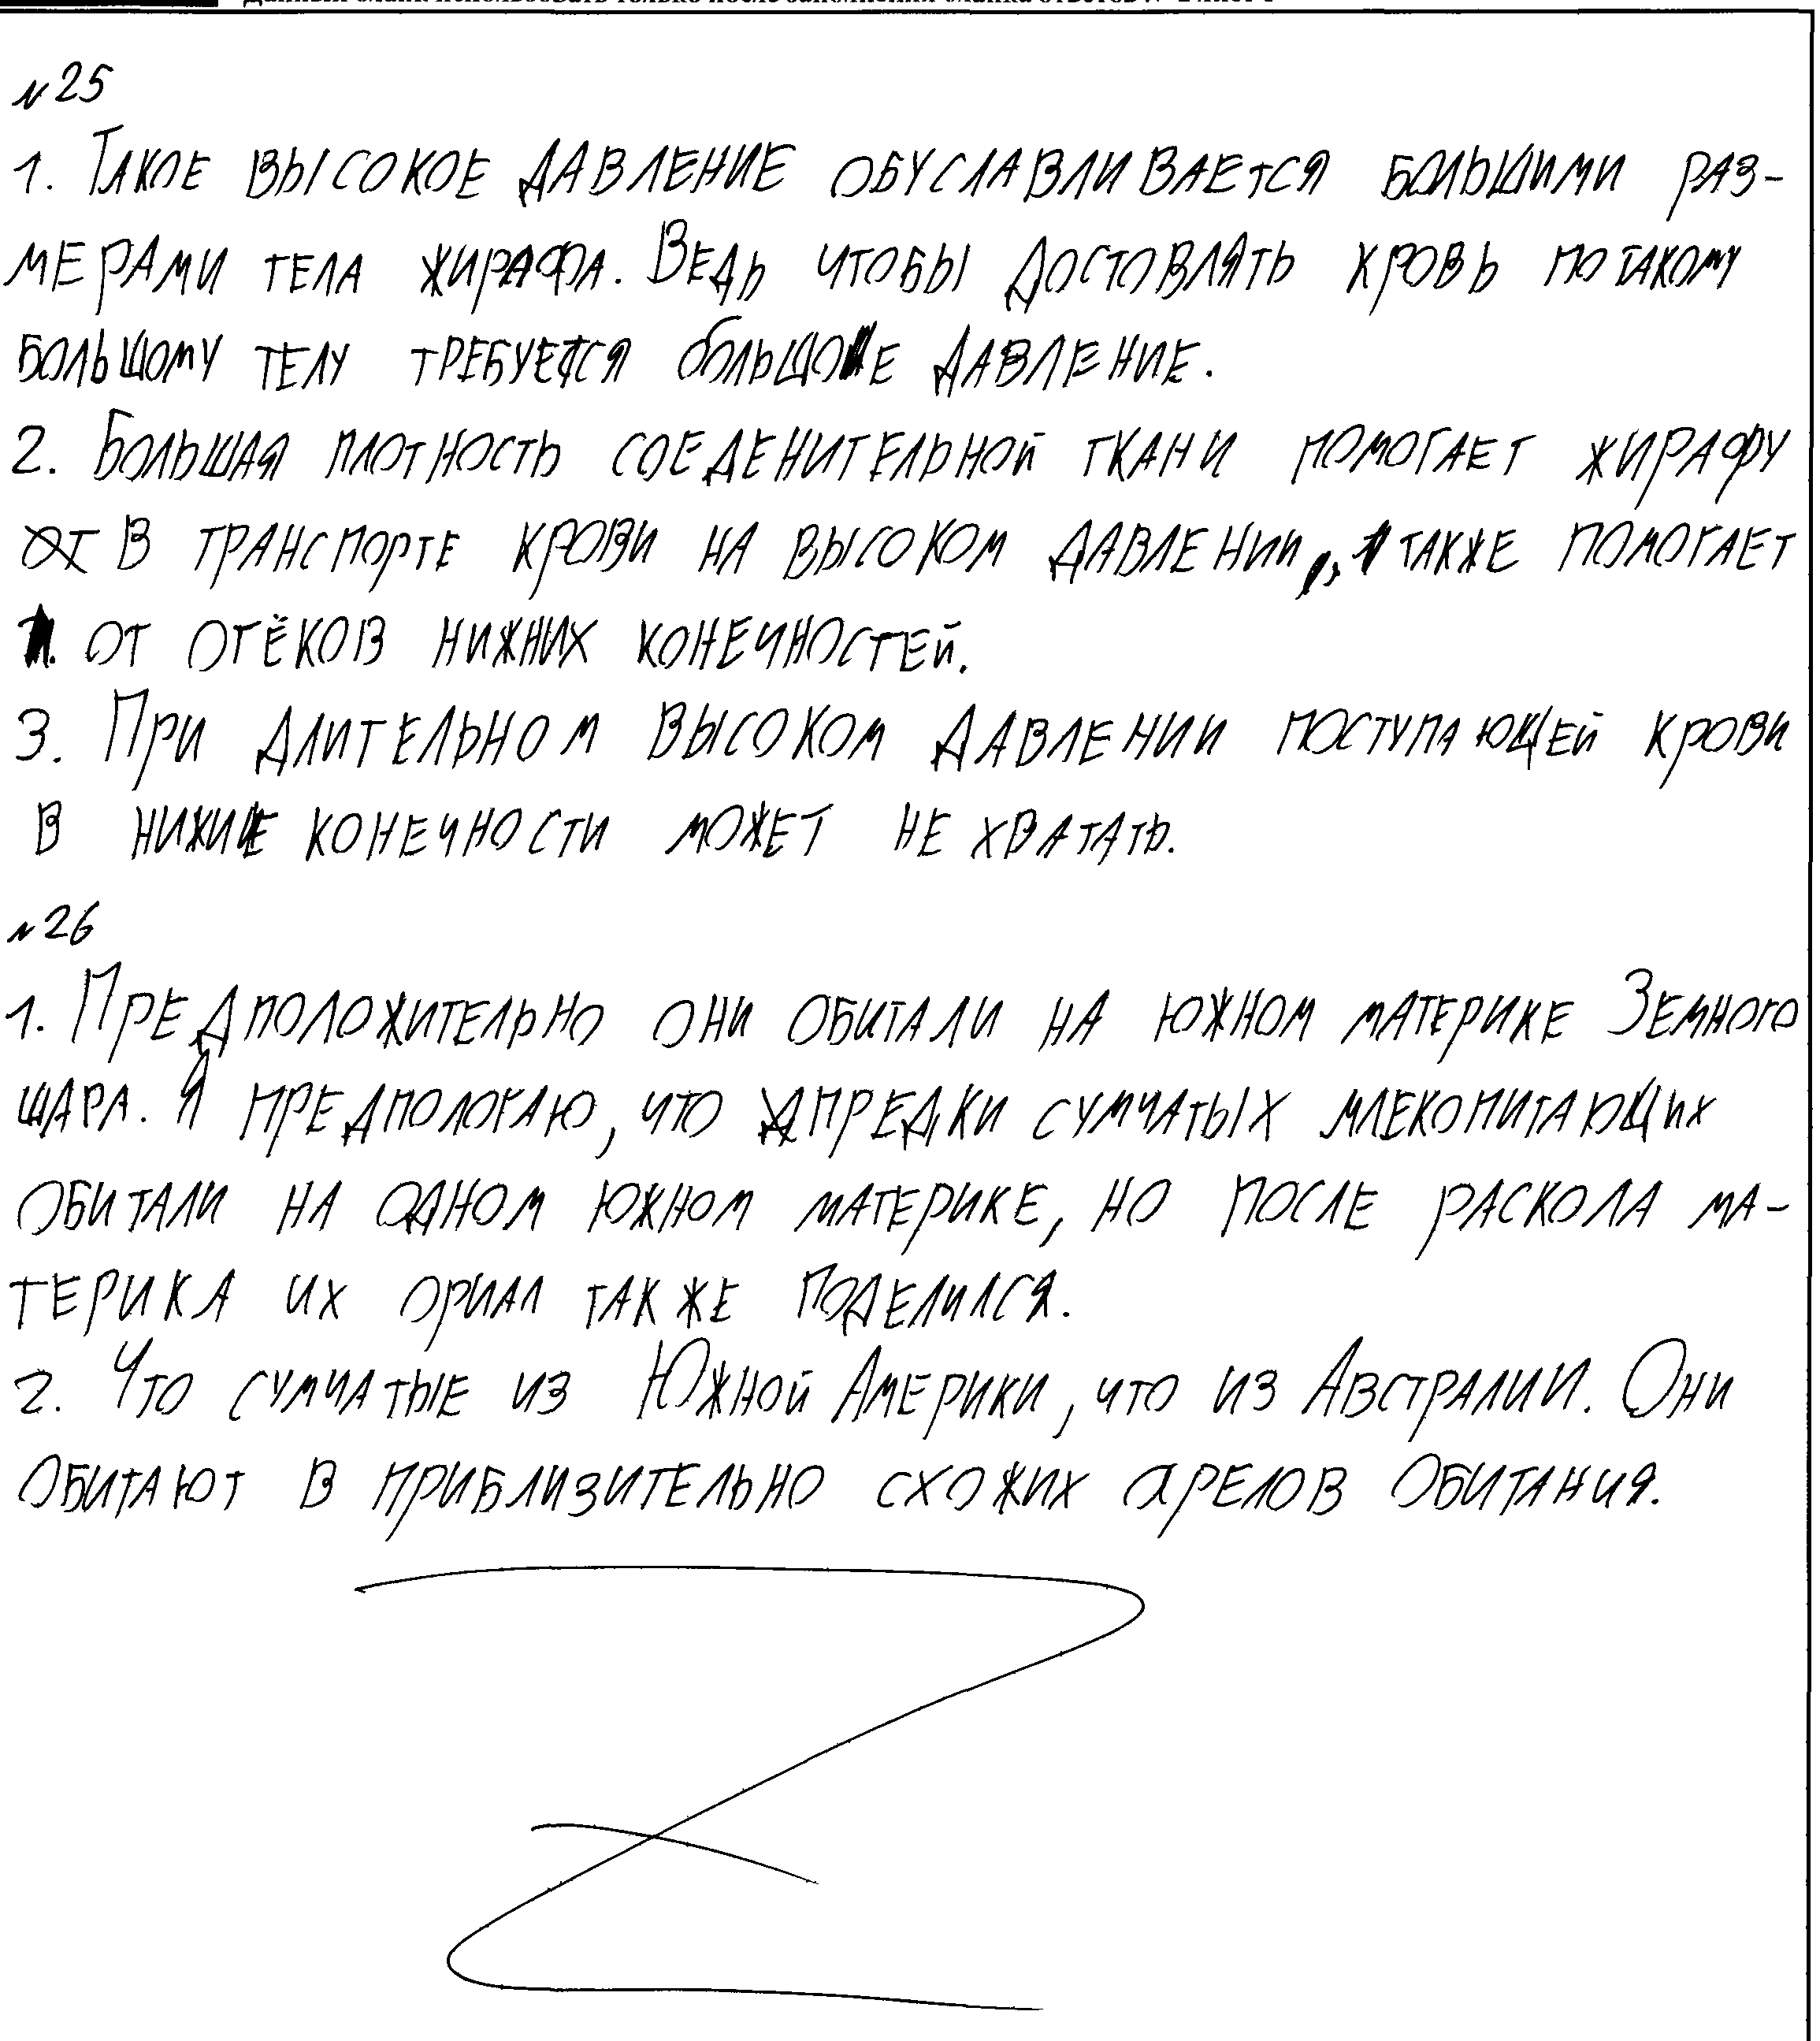 №25
1. Такое высокое давление обуславливается большими раз-
мерами тела жирафа. Ведь чтобы достовлять кровь по такому
большому телу требуется большое давление.
2. Большая плотность соеденительной ткани помогает жирафу
в транспорте крови на высоком давлении, также помогает
от отёков нижних конечностей.
3. При длительном высоком давлении поступающей крови
в нижние конечности может не хватать.
№26
1. Предположительно они обитали на южном материке Земного
шара. Я предпологаю, что предки сумчатых млекопитающих
обитали на одном южном материке, но после раскола ма-
терика их ориал также поделился.
2. Что сумчатые из Южной Америки, что из Австралии. Они
обитают в приблизительно схожих арелов обитания.